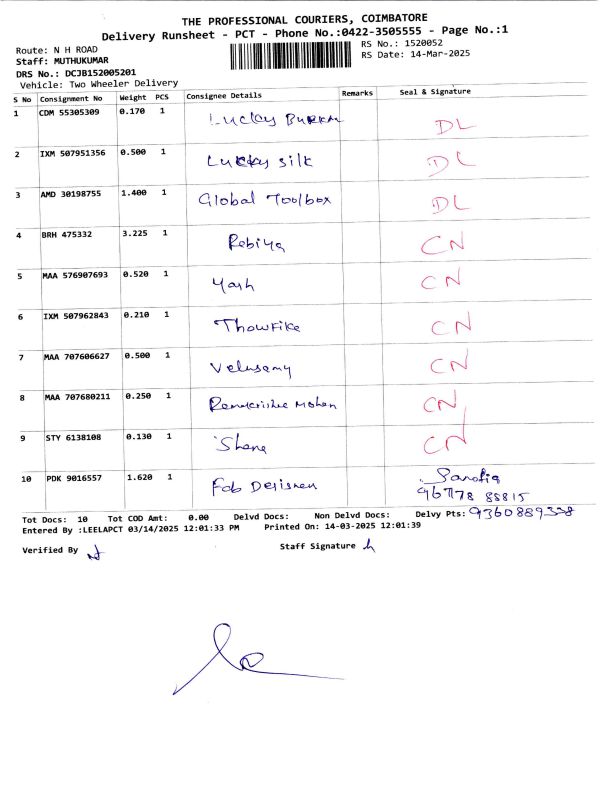 THE PROFESSIONAL COURIERS, COIMBATORE
Delivery Runsheet - PCT - Phone No.:0422-3505555 - Page No.:1
Route: N H ROAD
RS No.: 1520052
Staff: MUTHUKUMAR
RS Date: 14-Mar-2025
DRS No.: DCJB152005201
Vehicle: Two Wheeler Delivery
S No Consignment No Weight PCS Consignee Details Remarks Seal & Signature
1 CDM 55305309 0.170 1 Lucky DL
2 IXM 507951356 0.500 1 Lukky silk DL
3 AMD 30198755 1.400 1 Global Toolbox DL
4 BRH 475332 3.225 1 Rebiya CN
5 MAA 576907693 0.520 1 Yash CN
6 IXM 507962843 0.210 1 Thowfike CN
7 MAA 707606627 0.500 1 Velusamy CN
8 MAA 707680211 0.250 1 Mohan CN
9 STY 6138108 0.130 1 CN
10 PDK 9016557 1.620 1 Fab
96778 88815
Tot Docs: 10 Tot COD Amt: 0.00 Delvd Docs: Non Delvd Docs: Delvy Pts:
Entered By :LEELAPCT 03/14/2025 12:01:33 PM Printed On: 14-03-2025 12:01:39
Verified By
Staff Signature